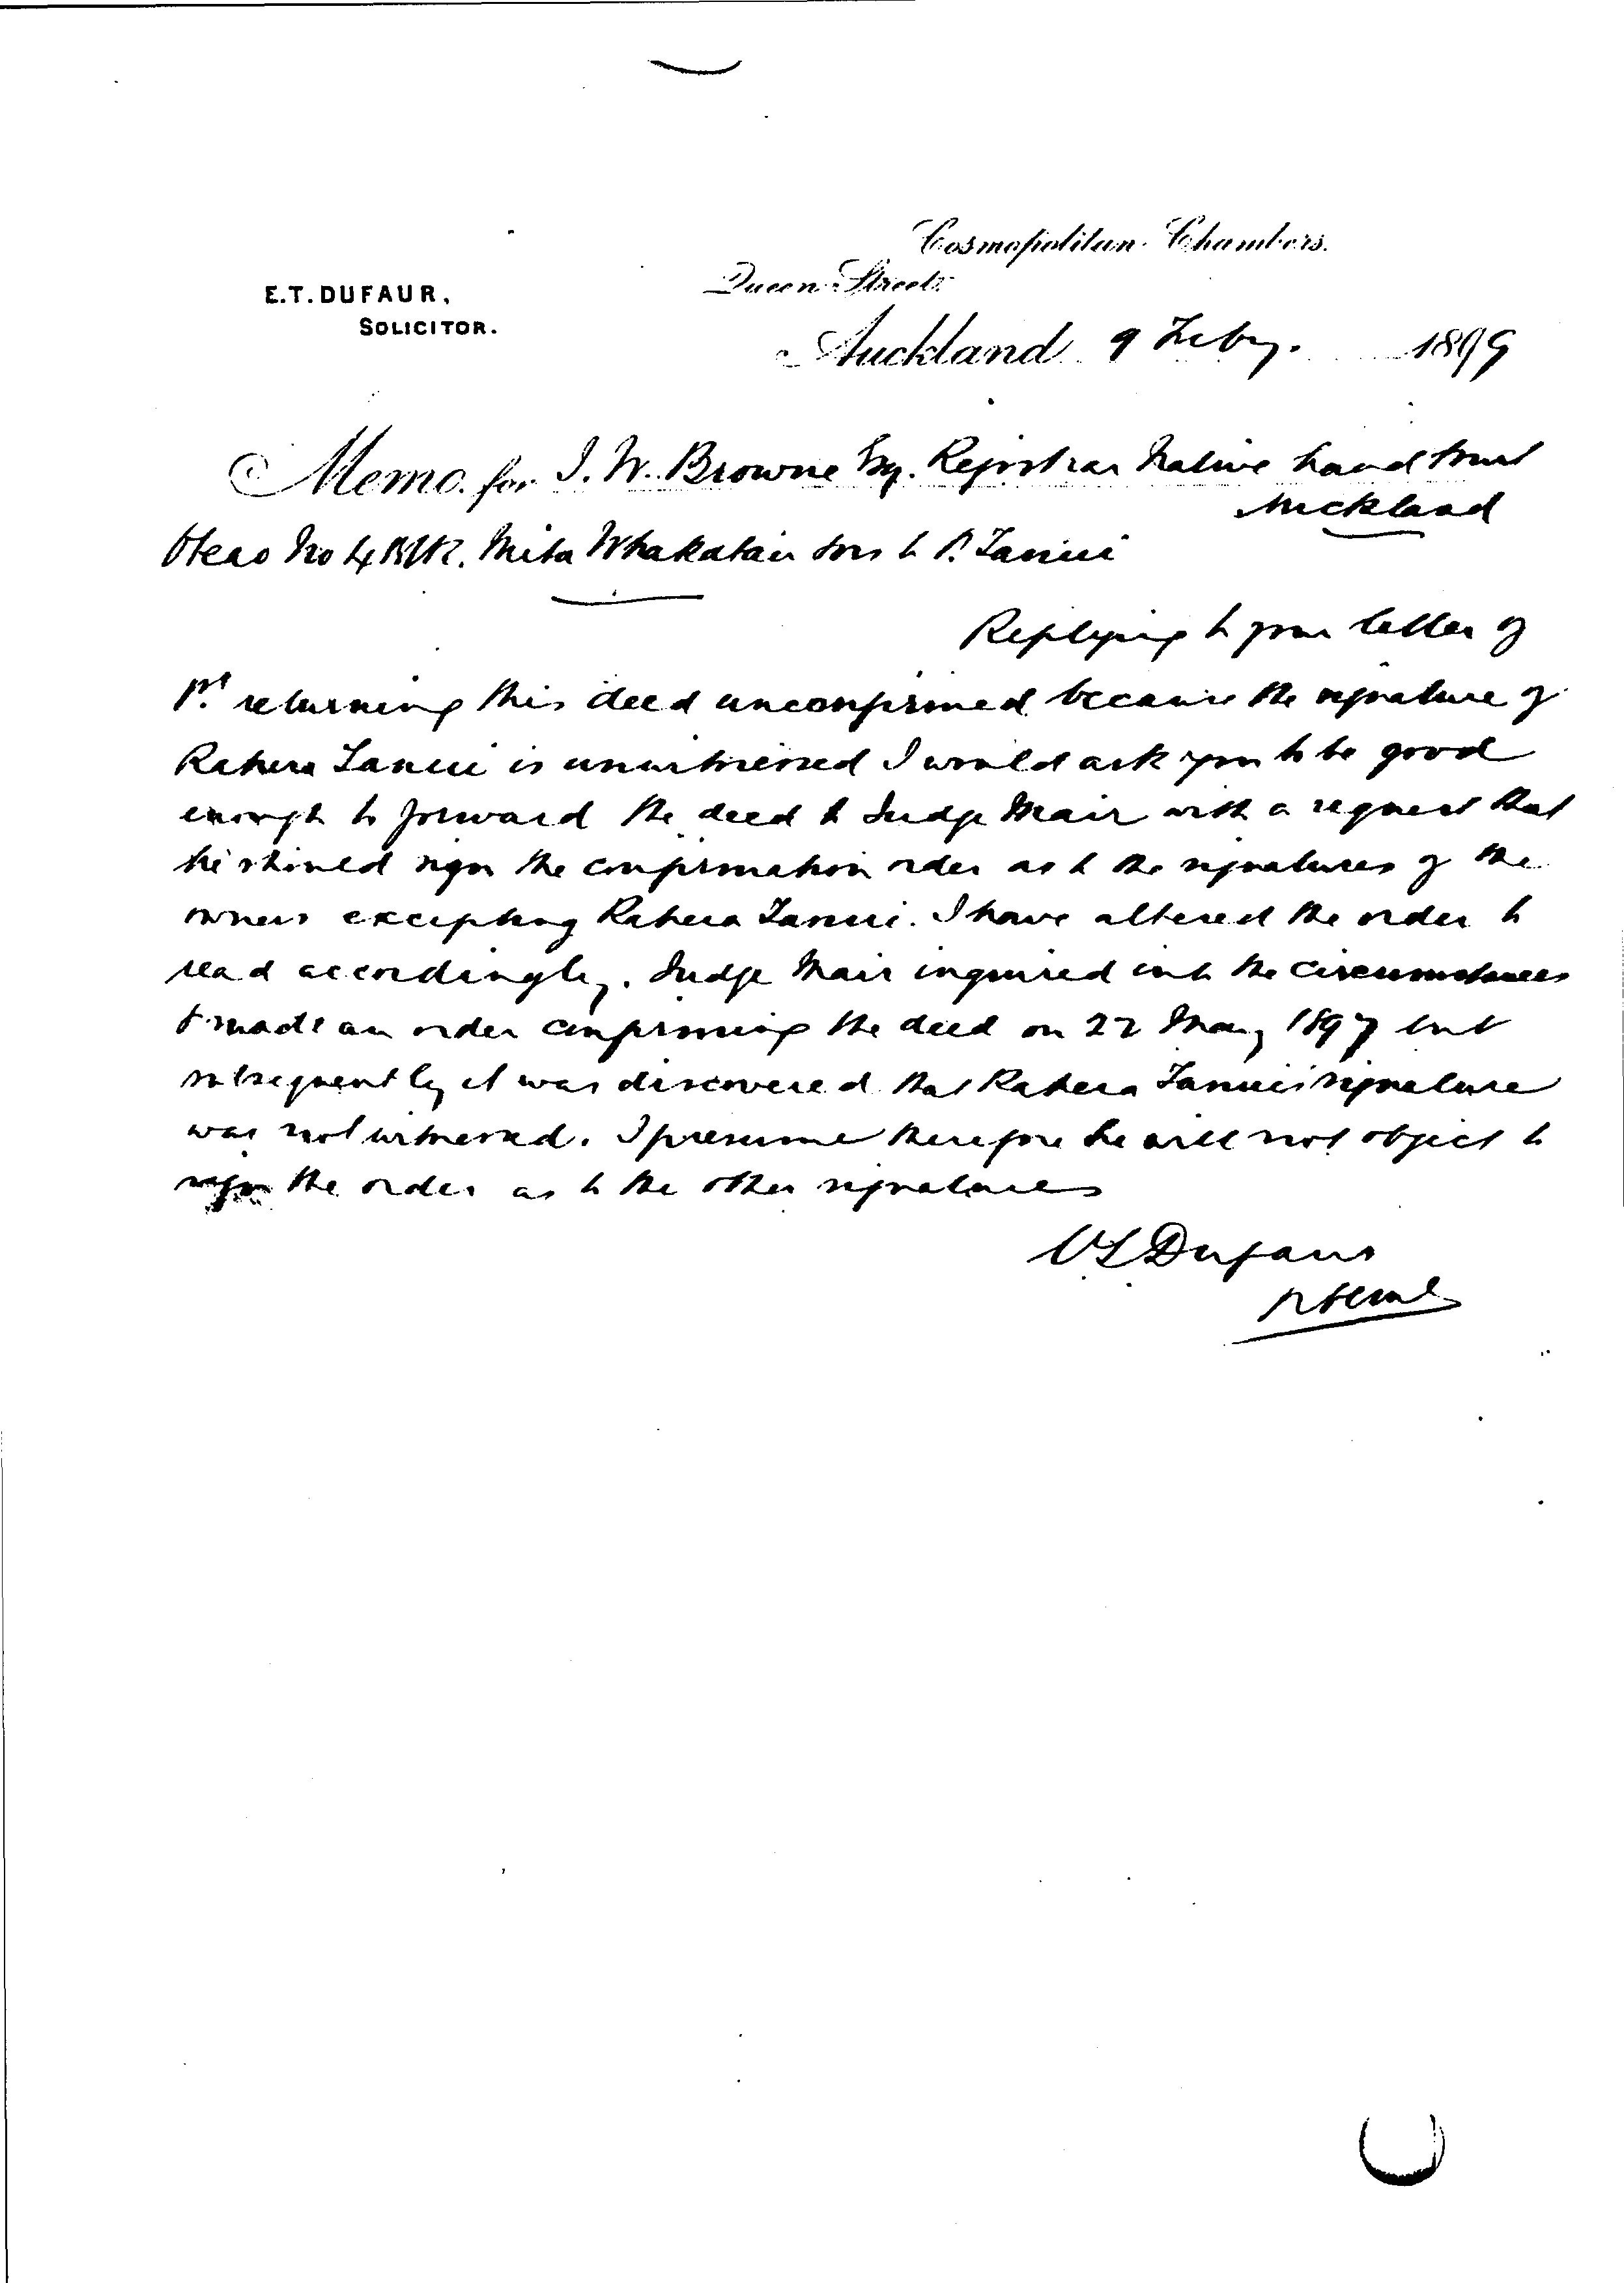 Cosmopolitan Chambers.
Queen Street
E.T. DUFAUR,
SOLICITOR.
Auckland 9 Feby. 1899
Memo. for J. W. Browne Esq. Registrar Native Land Court
Auckland
No 4 Mita Whakatau to P. Tanui
Replying to your letter of
1st returning this deed unconfirmed because the signature of
Rahera Tanui is unwitnessed I would ask you to be good
enough to forward the deed to Judge Mair with a request that
he should sign the confirmation order as to the signatures of the
owners excepting Rahera Tanui. I have altered the order to
read accordingly. Judge Mair inquired into the circumstances
& made an order confirming the deed on 22 May 1897 but
subsequently it was discovered that Rahera Tanui's signature
was not witnessed. I presume therefore he will not object to
sign the order as to the other signatures
Dufaur